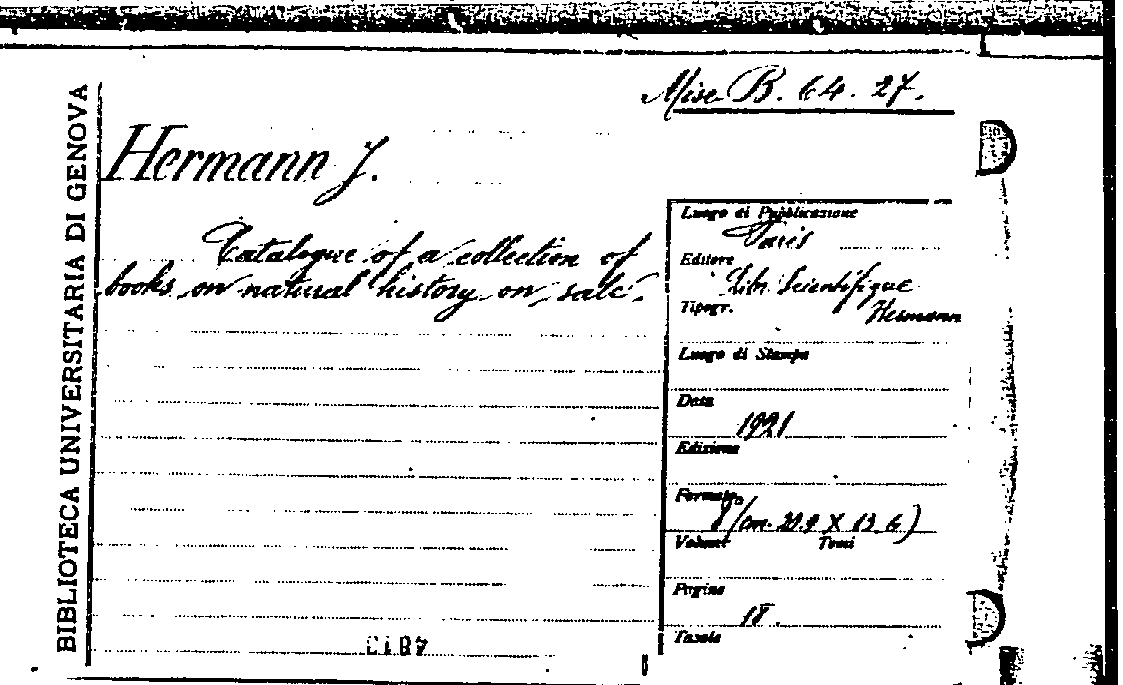 BIBLIOTECA UNIVERSITARIA DI GENOVA
Misc B. 64. 27.
Hermann J.
Catalogue of a collection of
books on natural history on sale.
Luogo di Pubblicazione
Paris
Editore
Libr Scientifique
Hermann
Tipogr.
Luogo di Stampa
Data
1921
Edizione
Formato
8/cm. X 13 6)
Volumi Tomi
Pagine
18.
Tavole